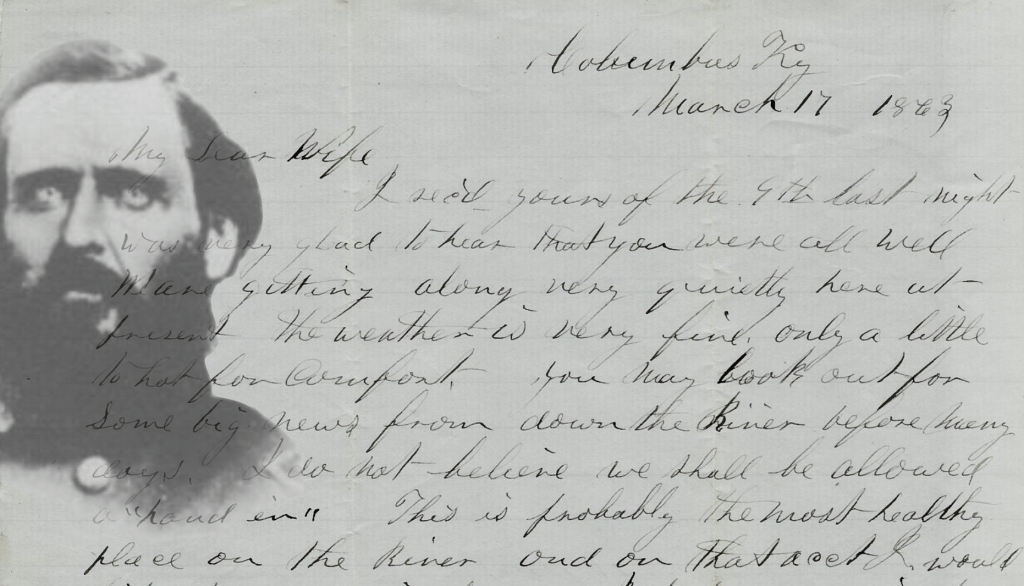 Columbus Ky
March 17 1863
My Dear Wife
I rec'd yours of the 9th last night
was very glad to hear that you were all well
We are gitting along very quietly here at
present the weather is very fine, only a little
to hot for comfort. You may look out for
Some big news from down the River before many
days. I do not believe we shall be allowed
a "hand in" This is probably the most healthy
place on the River and on that acct I would